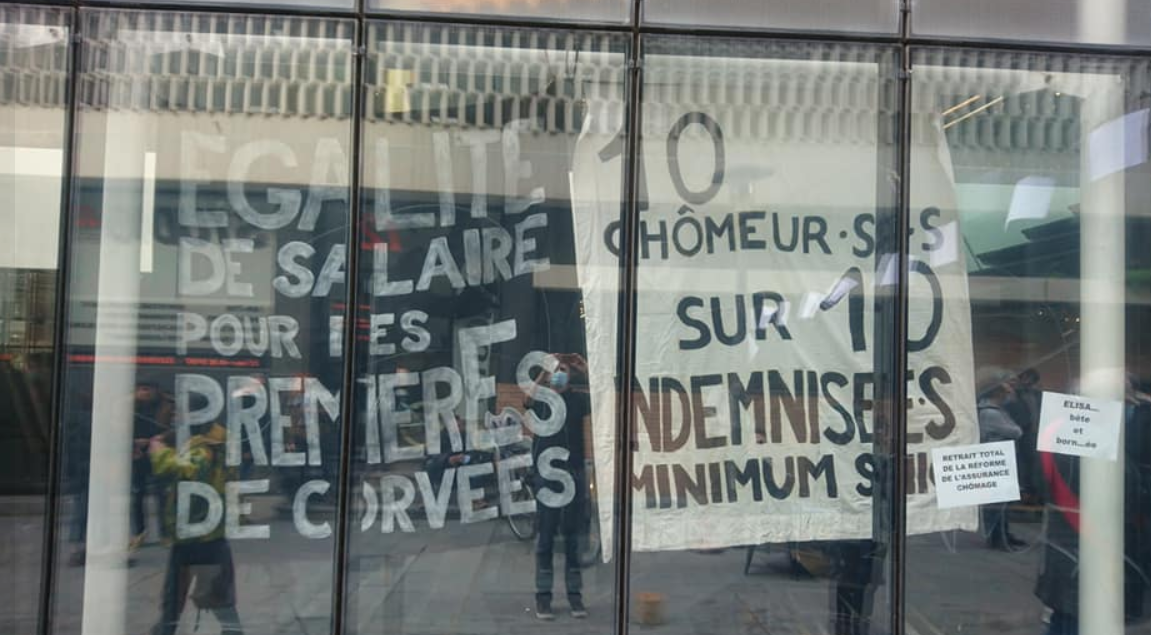 EGALITÉ
DE SALAIRE
POUR LES
PREMIERES
DE CORVEES
10
CHÔMEUR·SES
SUR 10
INDEMNISÉE·S
MINIMUM SMIC
RETRAIT TOTAL
DE LA RÉFORME
DE L'ASSURANCE
CHÔMAGE
ELISA...
bête
et
born...ée